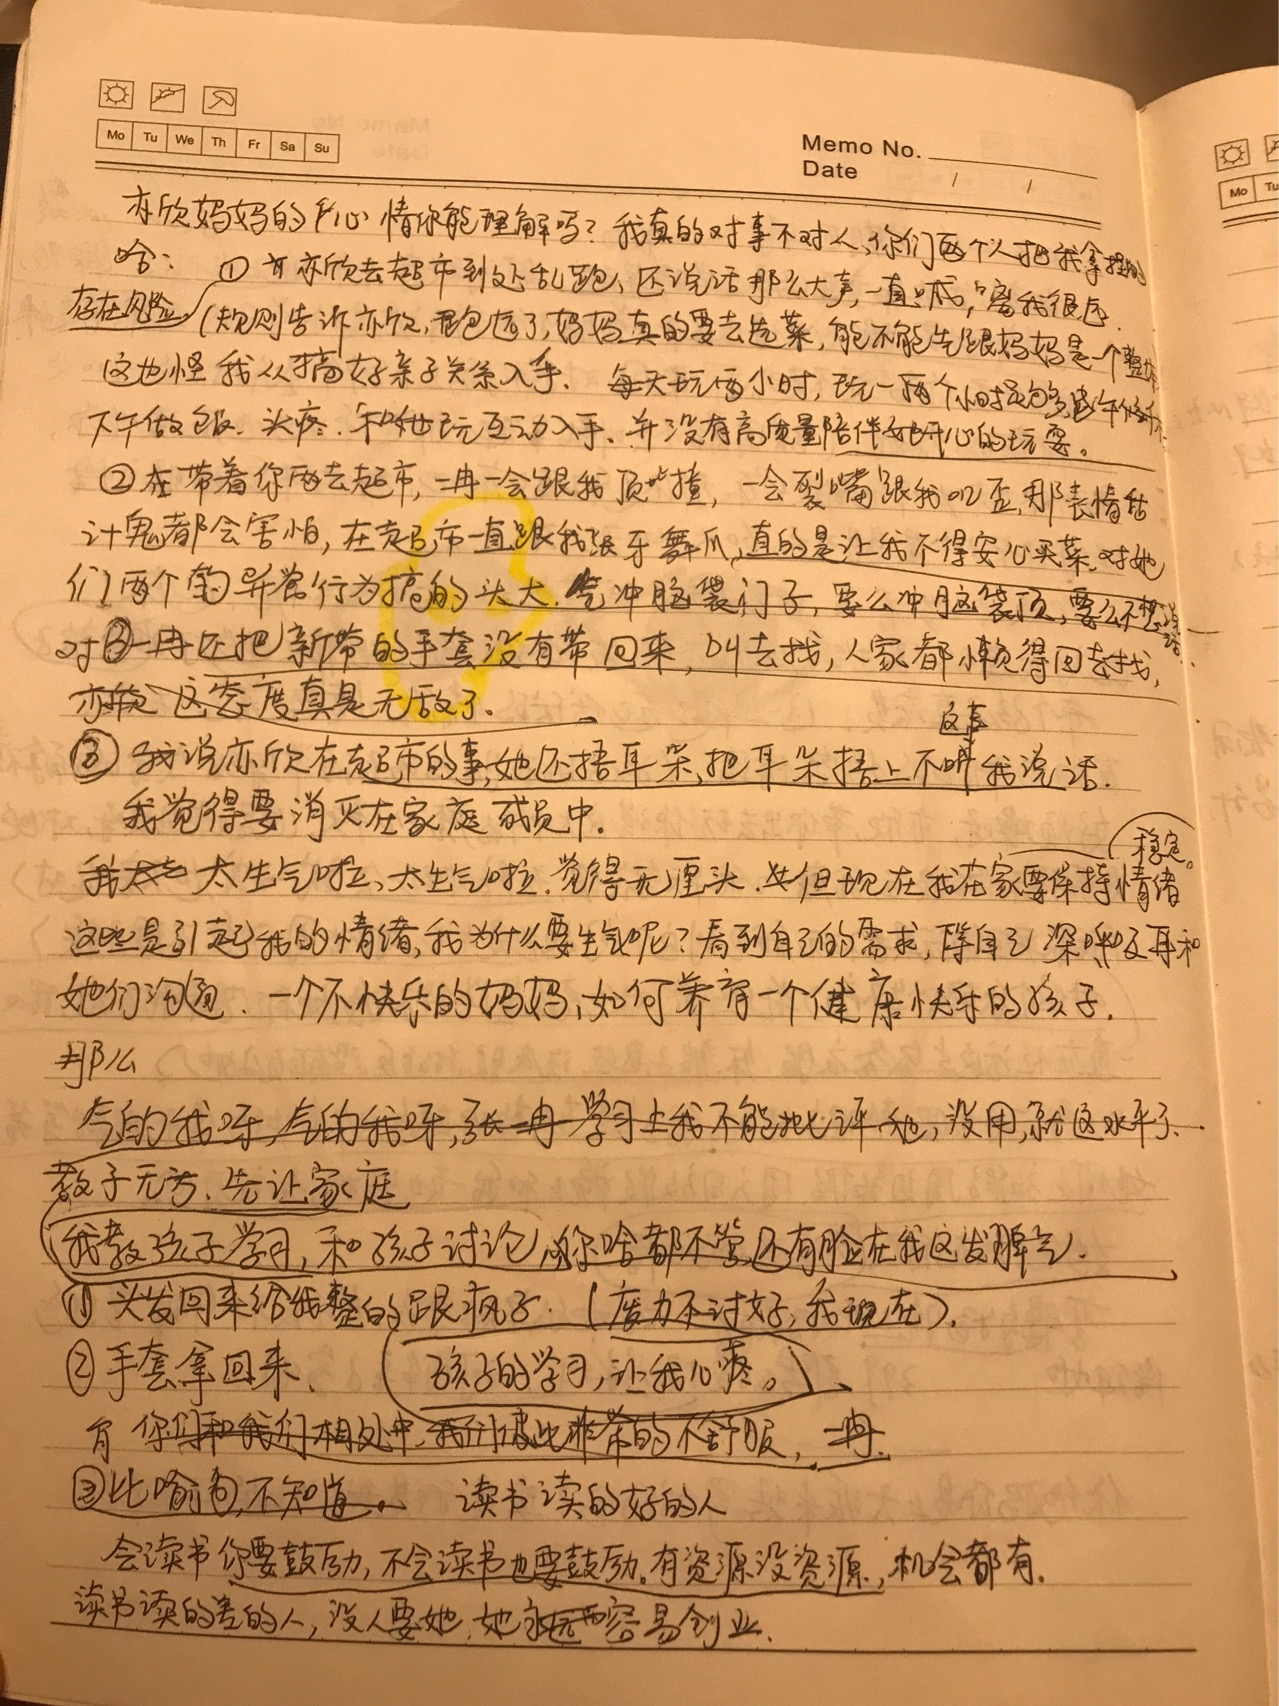 Mo Tu We Th Fr Sa Su
Memo No.
Date / /
亦欣妈妈的心情你能理解吗?我真的对事不对人,你们两个人把我拿捏的
哈: ①亦欣去超市到处乱跑、还说话那么大声,一直喊,离我很远.
存在风险 (规则告诉亦欣,跑远了,妈妈真的要去选菜,能不能先跟妈妈是一个整体
这也怪我从搞好亲子关系入手. 每天玩两小时,玩一两个小时
下午做饭.头疼.和她玩互动入手.并没有高质量陪伴她开心的玩耍。
②在带着你两去超市,一冉一会跟我顶撞,一会裂嘴跟我,那表情估
计鬼都会害怕,在超市一直跟我张牙舞爪,真的是让我不得安心买菜.对她
们两个的异常行为搞的头大.气冲脑袋门子,要么冲脑袋顶,要么不想
对一冉还把新带的手套没有带回来,叫去找,人家都懒得回去找,
这态度真是无敌了.
③我说亦欣在超市的事,她还捂耳朵,把耳朵捂上不听我说话.
这事
我觉得要消灭在家庭成员中.
我太 太生气啦、太生气啦.觉得无厘头.但现在我在家要保持情绪
稳定。
这些是引起我的情绪,我为什么要生气呢?看到自己的需求,陪自己深呼吸再和
她们沟通.一个不快乐的妈妈,如何养育一个健康快乐的孩子.
那么
气的我呀,气的我呀,张一冉学习上我不能批评她,没用,就这水平了.
教子无方.先让家庭
我教孩子学习,和孩子讨论,你啥都不管,还有脸在我这发脾气.
①头发回来给我整的跟疯子.(废力不讨好,我现在).
②手套拿回来. 孩子的学习,让我心疼。
有你们和我们相处中,我们彼此非常的不舒服,一冉.
③比喻句,不知道. 读书读的好的人
会读书你要鼓励,不会读书也要鼓励.有资源没资源,机会都有.
读书读的差的人,没人要她,她容易创业.
Mo Tu